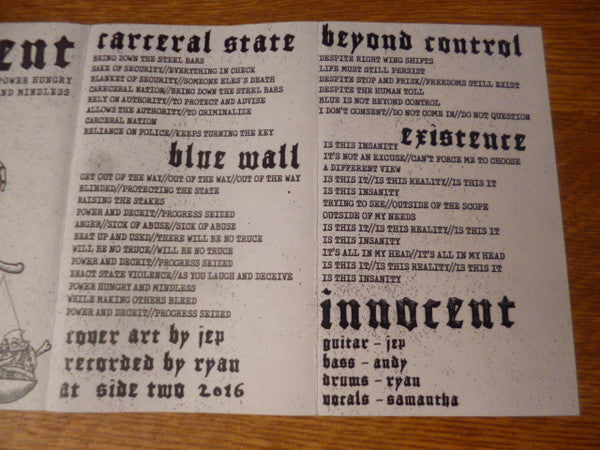 ent
POWER HUNGRY
AND MINDLESS
carceral state
BRING DOWN THE STEEL BARS
SAKE OF SECURITY//EVERYTHING IN CHECK
BLANKET OF SECURITY//SOMEONE ELES'S DEATH
CARECERAL NATION//BRING DOWN THE STEEL BARS
RELY ON AUTHORITY//TO PROTECT AND ADVISE
ALLOWS THE AUTHORITY//TO CRIMINALIZE
CARCERAL NATION
RELIANCE ON POLICE//KEEPS TURNING THE KEY
blue wall
GET OUT OF THE WAY//OUT OF THE WAY//OUT OF THE WAY
BLINDED//PROTECTING THE STATE
RAISING THE STAKES
POWER AND DECEIT//PROGRESS SEIZED
ANGER//SICK OF ABUSE//SICK OF ABUSE
BEAT UP AND USED//THERE WILL BE NO TRUCE
WILL BE NO TRUCE//WILL BE NO TRUCE
POWER AND DECEIT//PROGRESS SEIZED
ENACT STATE VIOLENCE//AS YOU LAUGH AND DECEIVE
POWER HUNGRY AND MINDLESS
WHILE MAKING OTHERS BLEED
POWER AND DECEIT//PROGRESS SEIZED
cover art by jep
recorded by ryan
at side two 2016
beyond control
DESPITE RIGHT WING SHIFTS
LIFE MUST STILL PERSIST
DESPITE STOP AND FRISK//FREEDOMS STILL EXIST
DESPITE THE HUMAN TOLL
BLUE IS NOT BEYOND CONTROL
I DON'T CONSENT//DO NOT COME IN//DO NOT QUESTION
existence
IS THIS INSANITY
IT'S NOT AN EXCUSE//CAN'T FORCE ME TO CHOOSE
A DIFFERENT VIEW
IS THIS IT//IS THIS REALITY//IS THIS IT
IS THIS INSANITY
TRYING TO SEE//OUTSIDE OF THE SCOPE
OUTSIDE OF MY NEEDS
IS THIS IT//IS THIS REALITY//IS THIS IT
IS THIS INSANITY
IT'S ALL IN MY HEAD//IT'S ALL IN MY HEAD
IS THIS IT//IS THIS REALITY//IS THIS IT
IS THIS INSANITY
innocent
guitar - jep
bass - andy
drums - ryan
vocals - samantha